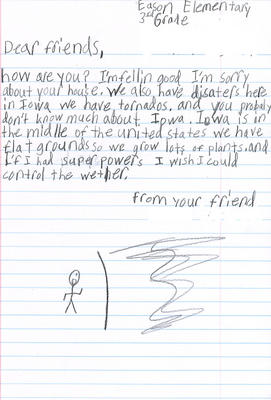 Eason Elementary
3rd Grade
Dear friends,
how are you? I'm felln good I'm sorry
about your house. we also have disaters here
in Iowa we have tornados. and you probaly
don't know much about Iowa. Iowa is in
the middle of the united states we have
flat grounds so we grow lots of plants. and
if I had super powers I wish I could
control the wether.
from your friend